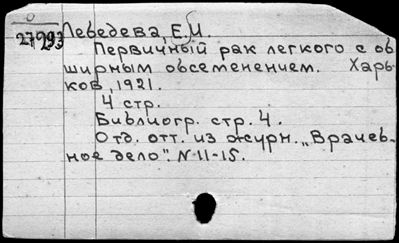 0
27293
Лебедева, Е.И.
Первичный рак легкого с об
ширным обсеменением. Харь-
ков, 1921.
4 стр.
Библиогр. стр. 4.
Отд. отт. из журн. „Врачеб-
ное дело". N-11-15.